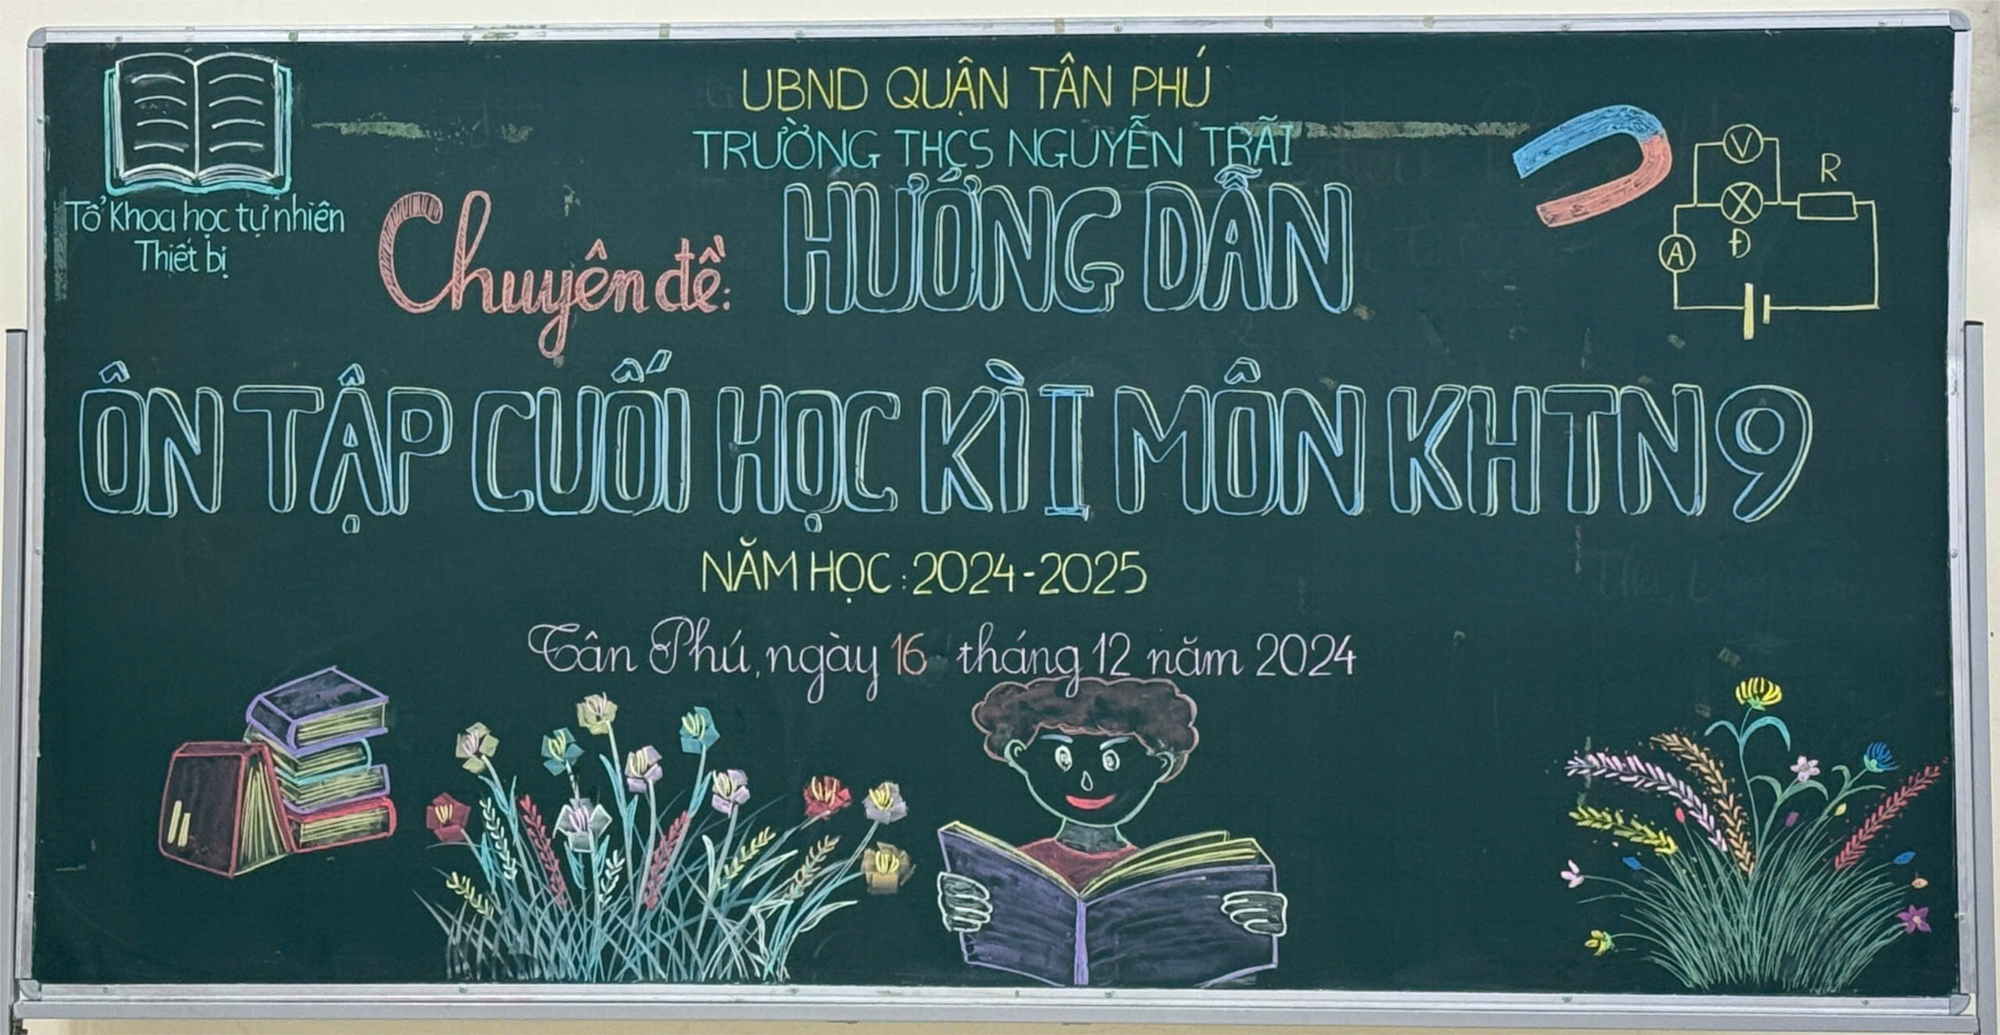 UBND QUẬN TÂN PHÚ
TRƯỜNG THCS NGUYỄN TRÃI
Tổ Khoa học tự nhiên
Thiết bị
Chuyên đề: HƯỚNG DẪN
ÔN TẬP CUỐI HỌC KÌ I MÔN KHTN 9
NĂM HỌC: 2024-2025
Tân Phú, ngày 16 tháng 12 năm 2024
V
R
A
Đ